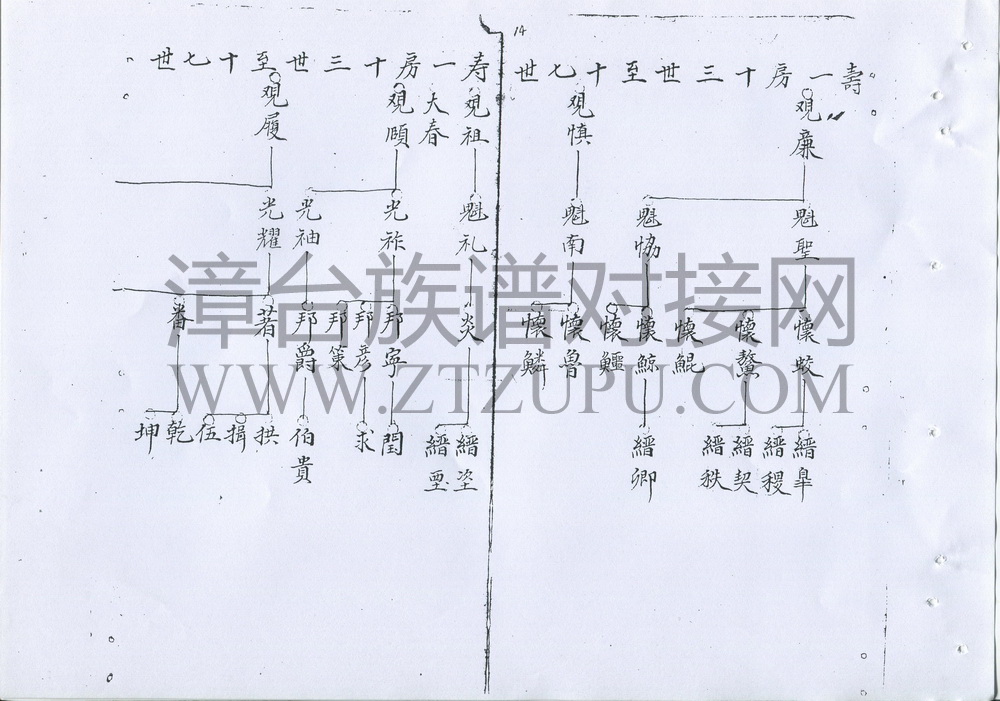 14
壽一房十三世至十七世
观廉
观慎
魁聖
魁恊
魁南
懷蛟
懷鰲
懷鯤
懷鯨
懷鱷
懷魯
懷鱗
縉皐
縉稷
縉契
縉秩
縉卿
寿一房十三世至十七世
观祖
大春
观頤
观履
魁礼
光祚
光袖
光耀
炎
邦寧
邦彦
邦策
邦爵
著
番
縉垐
縉垔
閏
求
伯貴
拱
揖
伍
乾
坤
漳台族谱对接网
WWW.ZTZUPU.COM